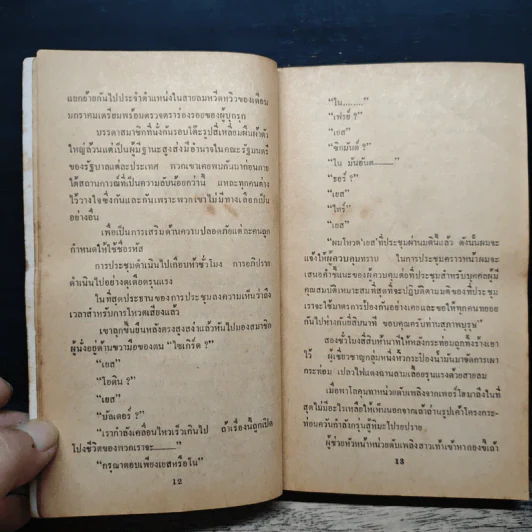 แยกย้ายกันไปประจำตำแหน่งในสายลมหวีดหวิวของเดือน
มกราคมเตรียมพร้อมตรวจตราร่องรอยของผู้บุกรุก
บรรดาสมาชิกที่นั่งกันรอบโต๊ะรูปสี่เหลี่ยมผืนผ้าตัว
ใหญ่ล้วนแต่เป็นผู้มีฐานะสูงส่งมีอำนาจในคณะรัฐมนตรี
ของรัฐบาลแต่ละประเทศ พวกเขาเคยพบกันมาก่อนภาย
ใต้สถานการณ์ที่เป็นความลับน้อยกว่านี้ และทุกคนต่าง
ไว้วางใจซึ่งกันและกันเพราะพวกเขาไม่มีทางเลือกเป็น
อย่างอื่น
เพื่อเป็นการเสริมด้านความปลอดภัยแต่ละคนถูก
กำหนดให้ใช้ชื่อรหัส
การประชุมดำเนินไปเกือบห้าชั่วโมง การอภิปราย
ดำเนินไปอย่างดุเดือดรุนแรง
ในที่สุดประธานของการประชุมลงความเห็นว่าถึง
เวลาสำหรับการโหวตเสียงแล้ว
เขาลุกขึ้นยืนหลังตรงสูงสง่าแล้วหันไปมองสมาชิก
ผู้นั่งอยู่ด้านขวามือของตน "ไซเกิร์ด ?"
"เยส"
"โอดิน ?"
"เยส"
"บัลเดอร์ ?"
"เรากำลังเคลื่อนไหวเร็วเกินไป ถ้าเรื่องนี้ถูกเปิด
โปงชีวิตของพวกเราจะ———"
"กรุณาตอบเพียงเยสหรือโน"
12
"โน........"
"เฟรย์ ?"
"เยส"
"ซิกมันด์ ?"
"ธอร์ ?"
"เยส"
"ไทร์ ?"
"เยส"
"ผมโหวต'เยส'ที่ประชุมผ่านมตินี้แล้ว ดังนั้นผมจะ
แจ้งให้ผู้ควบคุมทราบ ในการประชุมคราวหน้าผมจะ
เสนอคำชี้แนะของผู้ควบคุมต่อที่ประชุมสำหรับบุคคลผู้มี
คุณสมบัติเหมาะสมที่สุดที่จะปฏิบัติตามมติของที่ประชุม
เราจะใช้มาตรการป้องกันอย่างเคย และขอให้ทุกคนทยอย
กันไปห่างกันยี่สิบนาที ขอบคุณครับท่านสุภาพบุรุษ"
สองชั่วโมงสี่สิบห้านาทีให้หลังกระท่อมถูกทิ้งร้างเอา
ไว้ ผู้เชี่ยวชาญกลุ่มหนึ่งหิ้วกระป๋องน้ำมันมาจัดการเผา
กระท่อม เปลวไฟแดงฉานลามเลียอย่างรุนแรงด้วยสายลม
เมื่อพาโลคุมพาหน่วยดับเพลิงจากเพอร์โฮมาถึงในที่
สุดไม่มีอะไรเหลือให้เห็นนอกจากเถ้าถ่านรูปเค้าโครงกระ-
ท่อมควันกำลังกรุ่นสู้หิมะโปรยปราย
ผู้ช่วยหัวหน้าหน่วยดับเพลิงสาวเท้าเข้าหากองขี้เถ้า
13